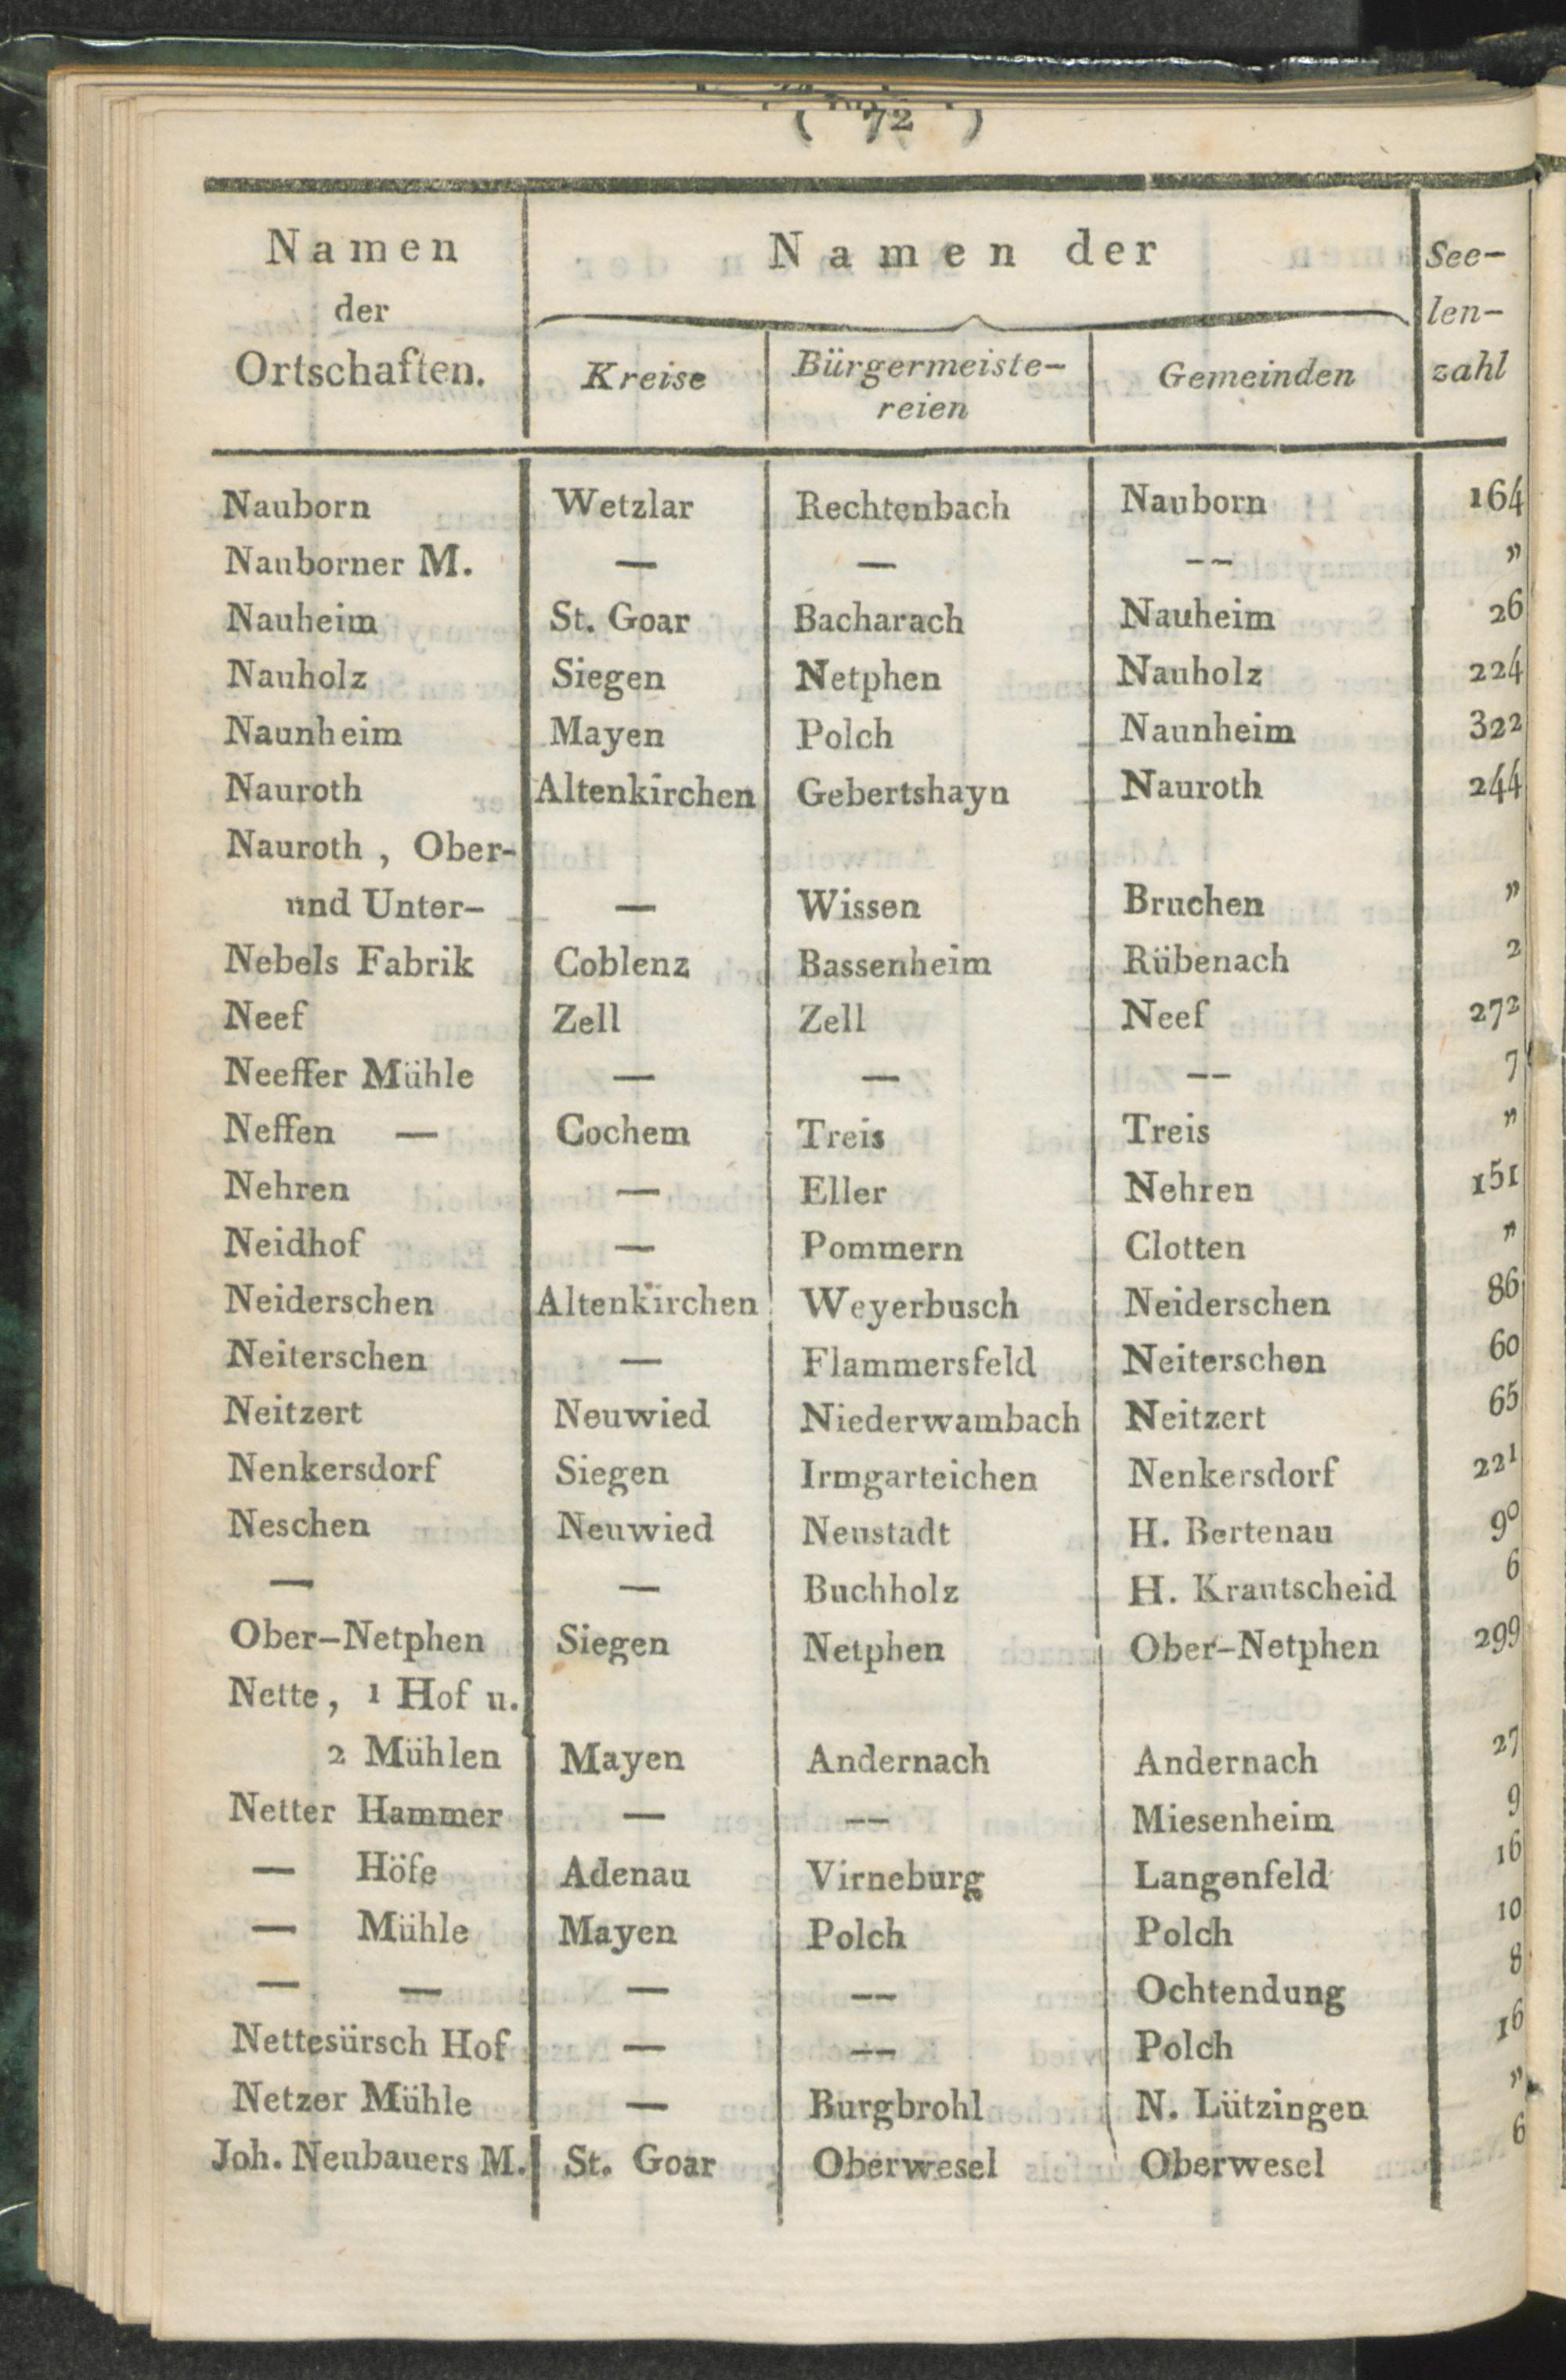 ( 72 )
Namen Namen der See-
der len-
Ortschaften. Kreise Bürgermeiste- Gemeinden zahl
reien
Nauborn Wetzlar Rechtenbach Nauborn 164
Nauborner M. — — —— „
Nauheim St. Goar Bacharach Nauheim 26
Nauholz Siegen Netphen Nauholz 224
Naunheim Mayen Polch Naunheim 322
Nauroth Altenkirchen Gebertshayn Nauroth 244
Nauroth , Ober-
und Unter- — Wissen Bruchen „
Nebels Fabrik Coblenz Bassenheim Rübenach 2
Neef Zell Zell Neef 272
Neeffer Mühle — — —— 7
Neffen — Cochem Treis Treis „
Nehren — Eller Nehren 151
Neidhof — Pommern Clotten „
Neiderschen Altenkirchen Weyerbusch Neiderschen 86
Neiterschen — Flammersfeld Neiterschen 60
Neitzert Neuwied Niederwambach Neitzert 65
Nenkersdorf Siegen Irmgarteichen Nenkersdorf 221
Neschen Neuwied Neustadt H. Bertenau 90
— — Buchholz H. Krautscheid 6
Ober-Netphen Siegen Netphen Ober-Netphen 299
Nette, 1 Hof u.
2 Mühlen Mayen Andernach Andernach 27
Netter Hammer — —— Miesenheim 9
— Höfe Adenau Virneburg Langenfeld 16
— Mühle Mayen Polch Polch 10
— — — —— Ochtendung 8
Nettesürsch Hof — —— Polch 16
Netzer Mühle — Burgbrohl N. Lützingen „
Joh. Neubauers M. St. Goar Oberwesel Oberwesel 6